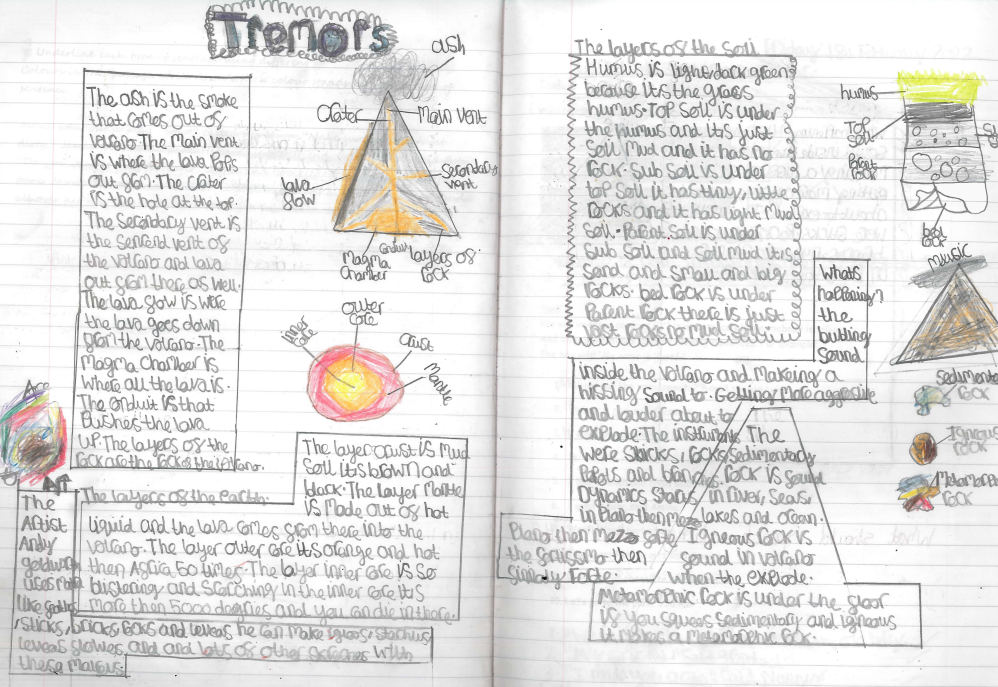 Tremors
ash
Crater
Main vent
lava
flow
secondary
vent
Magma
Chamber
Conduit
layers of
rock
The ash is the smoke
that comes out of
volcano. The Main vent
is where the lava Pops
out from. The Crater
is the hole at the top.
The Secondary vent is
the second vent of
the volcano and lava
out from there as well.
The lava flow is were
the lava goes down
from the volcano. The
Magma Chamber is
where all the lava is.
The conduit is that
Pushes the lava
up. The layers of the
rock are the rocks of the volcano.
inner
core
outer
core
Crust
Mantle
Art
Art
The
Artist
Andy
goldwor
uses
like
sticks, bricks rocks and leaves he can make
leaves and and lots of other with
these
The layers of the earth.
The layer crust is Mud
Soil its brown and
black. The layer Mantle
is Made out of hot
liquid and the lava comes from there into the
volcano. The layer outer core its orange and hot
then Africa 50 times. The layer inner core is so
blistering and scorching in the inner core its
more then 5000 degries and you can die in there.
The layers of the soil
Humus is light/dark green
because its the grass
humus. Top Soil is under
the Humus and its just
Soil Mud and it has no
rock. Sub Soil is under
top Soil it has tiny, little
rocks and it has light Mud
Soil. Parent Soil is under
Sub Soil and Soil mud it is
Sand and small and big
rocks. bed rock is under
Parent rock there is just
rocks no Mud Soil.
humus
Top
Soil
Parent
rock
bed
rock
Music
Whats
happening?
the
bubbling
Sound
inside the volcano and makeing a
hissing Sound to. Getting More
and louder about to
explode. The instruments
were Sticks, rocks
Dynamics Starts
in Piano then Mezzo
Piano then Mezzo forte
the fortissimo then
simply Forte.
The
Sedimentary
rock is found
in river, seas,
lakes and ocean.
Igneous rock is
found in volcano
when the explode.
Metamorphic rock is under the floor
if you squees Sedimentary and igneous
it makes a metamorphic rock.
Sedimenta
rock
Igneous
rock
Metamorphic
rock